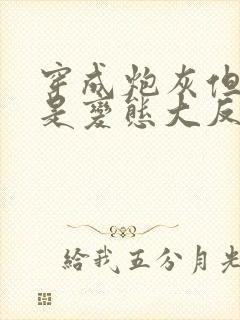 穿成炮灰但
是變態大反
給我五分月光